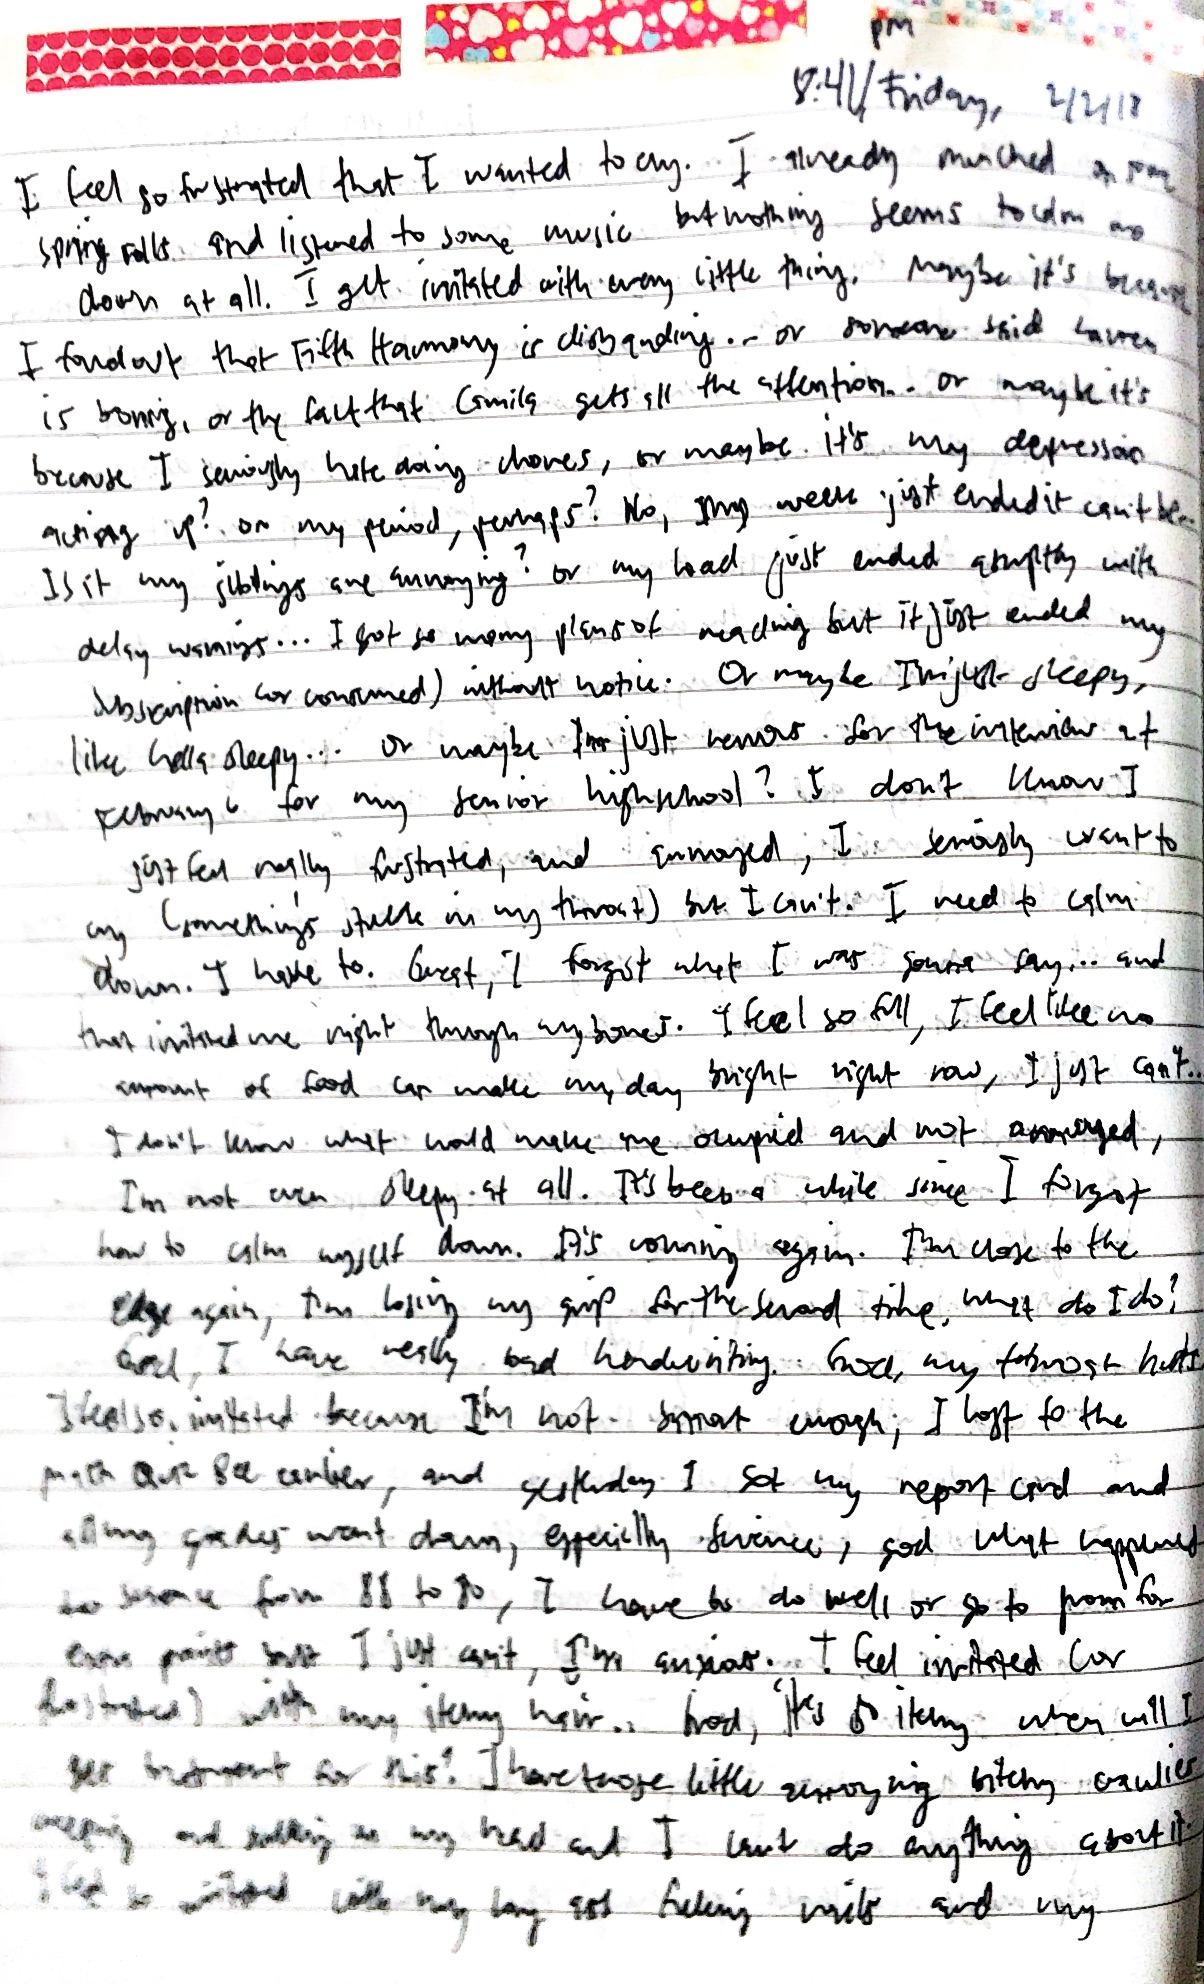 pm
8:41/Friday, 2/2/18
I feel so frustrated that I wanted to cry. I already munched on
spring rolls and listened to some music but nothing seems to calm me
down at all. I get irritated with every little thing. Maybe it's because
I found out that Fifth Harmony is disbanding... or someone said Lauren
is boring, or the fact that Camila gets all the attention... or maybe it's
because I seriously hate doing chores, or maybe it's my depression
acting up? or my period, perhaps? No, my week just ended it can't be
Is it my siblings are annoying? or my load just ended abruptly with
delay warnings... I got so many plans of reading but it just ended my
subscription (or consumed) without notice. Or maybe I'm just sleepy,
like hella sleepy... or maybe I'm just nervous for the interview at
February 6 for my senior highschool? I don't know I
just feel really frustrated, and annoyed, I seriously want to
cry (something's stuck in my throat) but I can't. I need to calm
down. I have to. Great, I forgot what I was gonna say... and
that irritated me right through my bones. I feel so full, I feel like no
amount of food can make my day bright right now, I just can't..
I don't know what would make me ocupied and not annoyed,
I'm not even sleepy at all. It's been a while since I forgot
how to calm myself down. It's coming again. I'm close to the
edge again, I'm losing my grip for the second time, what do I do?
God, I have really bad handwriting. God, my throat hurts
I feel so irritated because I'm not smart enough, I lost to the
math Quiz Bee earlier, and yesterday I got my report card and
all my grades went down, especially Science, god what happened
to science from 88 to 80, I have to do well or go to prom for
extra points but I just can't, I'm anxious... I feel irritated (or
frustrated) with my itchy hair.. God, it's so itchy when will I
get treatment for this? I have those little annoying bitchy crawlies
creeping and sucking on my head and I can't do anything about it
I feel so irritated with my long ass fucking nails and my